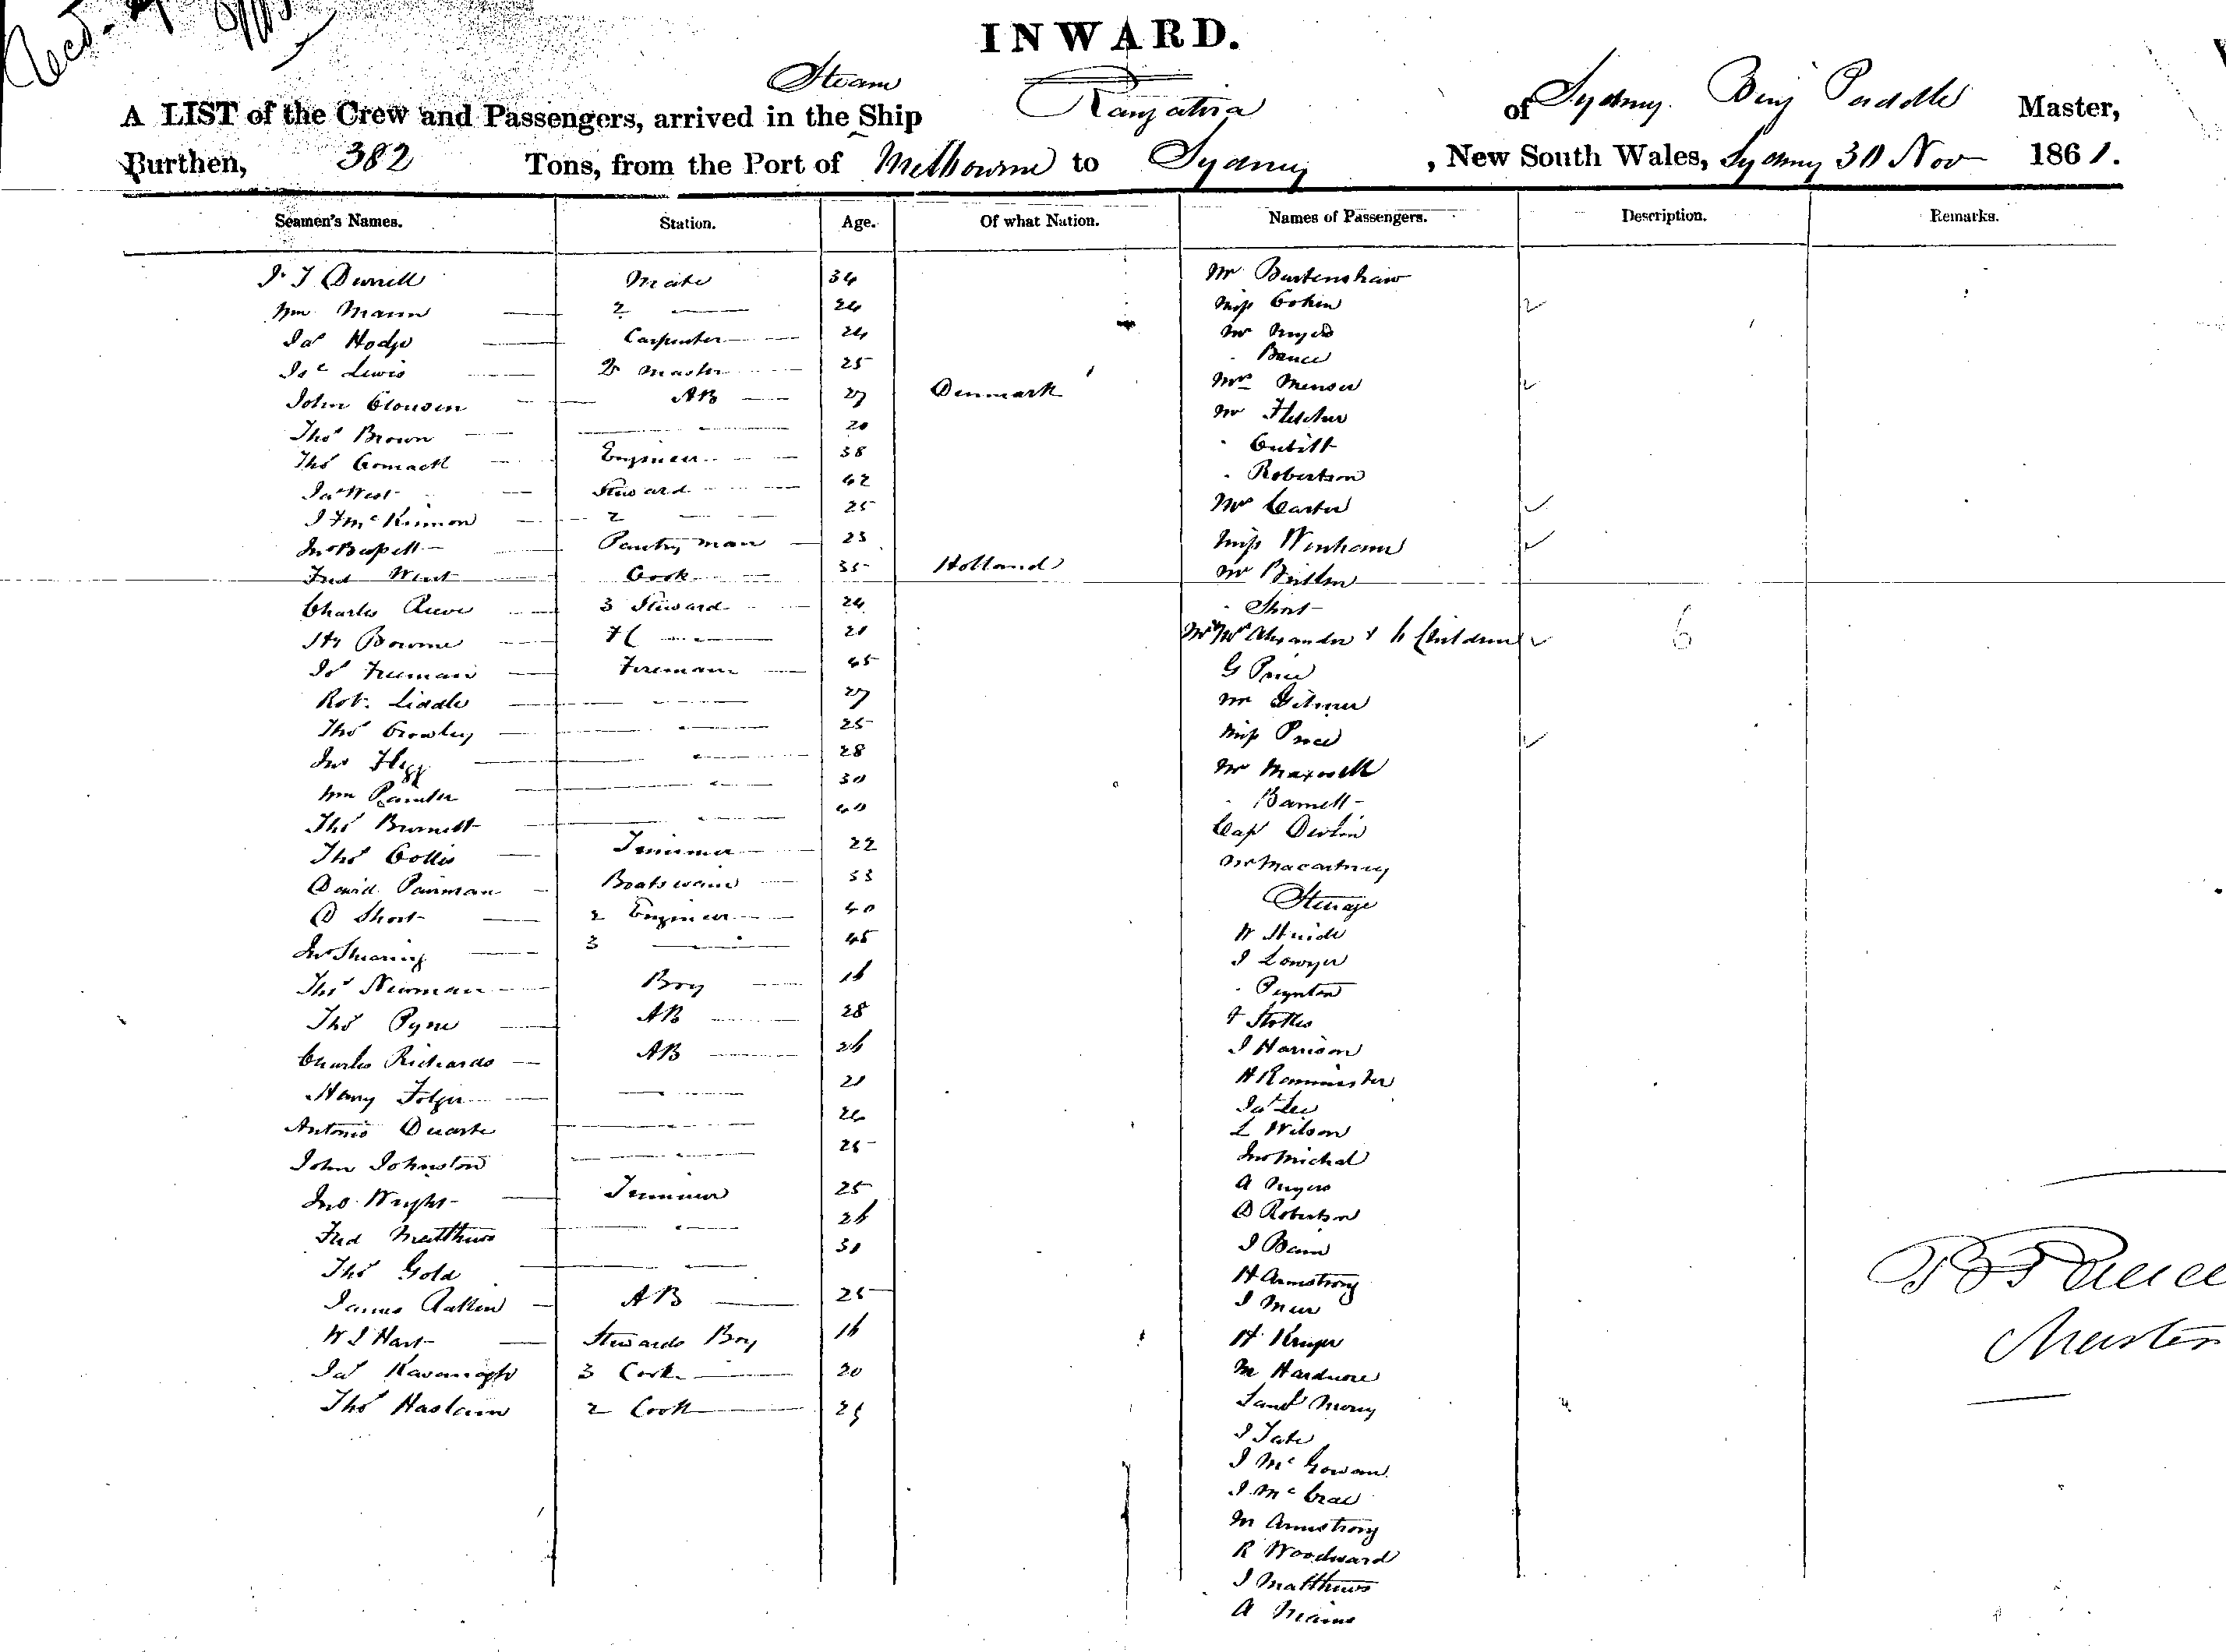 INWARD.
Steam
A LIST of the Crew and Passengers, arrived in the Ship Rangatira of Sydney Benj Paddle Master,
Burthen, 382 Tons, from the Port of Melbourne to Sydney, New South Wales, Sydney 30 Nov 1861.
Seamen's Names. Station. Age. Of what Nation. Names of Passengers. Description. Remarks.
Mate 34
Wm Mann 2 24
Jas Hodge Carpenter 24
Lewis Qr Master 25
John Clousen AB 27 Denmark
Thos Brown 20
Thos Comack Engineer 38
Jas West Steward 42
J F McKinnon 2 25
Pantry man 23
Fred Cook 35 Holland
Charles Reeve 3 Steward 24
Hy Bourne 21
Freeman Fireman 45
Robt Liddle 27
Thos Crowley 25
Jno Flegg 28
Wm 30
Thos Burnett 40
Thos Collis Trimmer 22
David Pairman Boatswain 33
D Short 2 Engineer 40
Jno Shearing 3 45
Thos Newman Boy 16
Thos Pyne AB 28
Charles Richards AB 26
Henry Folger 21
Antonio Duarte 24
John Johnston 25
Jno Wright Trimmer 25
Fred Matthews 26
Thos Gold 30
James AB 25
W J Hart Stewards Boy 16
Jas Kavanagh 3 Cook 20
Thos Haslam 2 Cook 25
Mr Burtenshaw
Miss Cohen
Mr Myers
" Bance
Mrs Menser
Mr Fletcher
" Cubitt
" Robertson
Mrs Carter
Miss Wenham
Mr
" Short
Mr & Mrs Alexander & 6 Children 6
G Price
Mr Gilmer
Miss Price
Mr Maxwell
" Barnett
Cap Devlin
Mr Macartney
Steerage
W
J Lowyer
" Poynton
F Stokes
J Harrison
H
Jas Lee
L Wilson
Jno Michal
A Myers
D Robertson
J Bain
H Armstrong
J Muir
H Kruger
M Hardmore
Saml Morey
J Tate
J McGowan
J McCrae
M Armstrong
R Woodward
J Matthews
A
Master